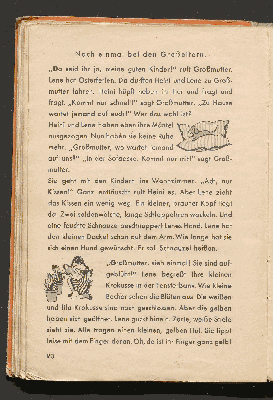 Noch einmal bei den Großeltern.
„Da seid ihr ja, meine guten Kinder!" ruft Großmutter.
Lene hat Osterferien. Da durften Heini und Lene zu Groß-
mutter fahren. Heini hüpft neben ihr her und fragt und
fragt. „Kommt nur schnell!" sagt Großmutter. „Zu Hause
wartet jemand auf euch!" Wer das wohl ist?
Heini und Lene haben eben ihre Mäntel
ausgezogen. Nun haben sie keine Ruhe
mehr. „Großmutter, wo wartet jemand
auf uns?" „In der Sofaecke. Kommt nur mit!" sagt Groß-
mutter.
Sie geht mit den Kindern ins Wohnzimmer. „Ach, nur
Kissen!" Ganz enttäuscht ruft Heini es. Aber Lene zieht
das Kissen ein wenig weg. Ein kleiner, brauner Kopf liegt
da. Zwei seidenweiche, lange Schlappohren wackeln. Und
eine feuchte Schnauze beschnuppert Lenes Hand. Lene hat
den kleinen Dackel schon auf dem Arm. Wie lange hat sie
sich einen Hund gewünscht. Er soll Schnauzel heißen.
„Großmutter, sieh einmal! Sie sind auf-
geblüht!" Lene begrüßt ihre kleinen
Krokusse in der Fensterbank. Wie kleine
Becher sehen die Blüten aus. Die weißen
und lila Krokusse sind noch geschlossen. Aber die gelben
haben sich geöffnet. Lene guckt hinein. Zarte, weiße Stiele
sieht sie. Alle tragen einen kleinen, gelben Hut. Sie tippt
leise mit dem Finger daran. Oh, da ist ihr Finger ganz gelb!